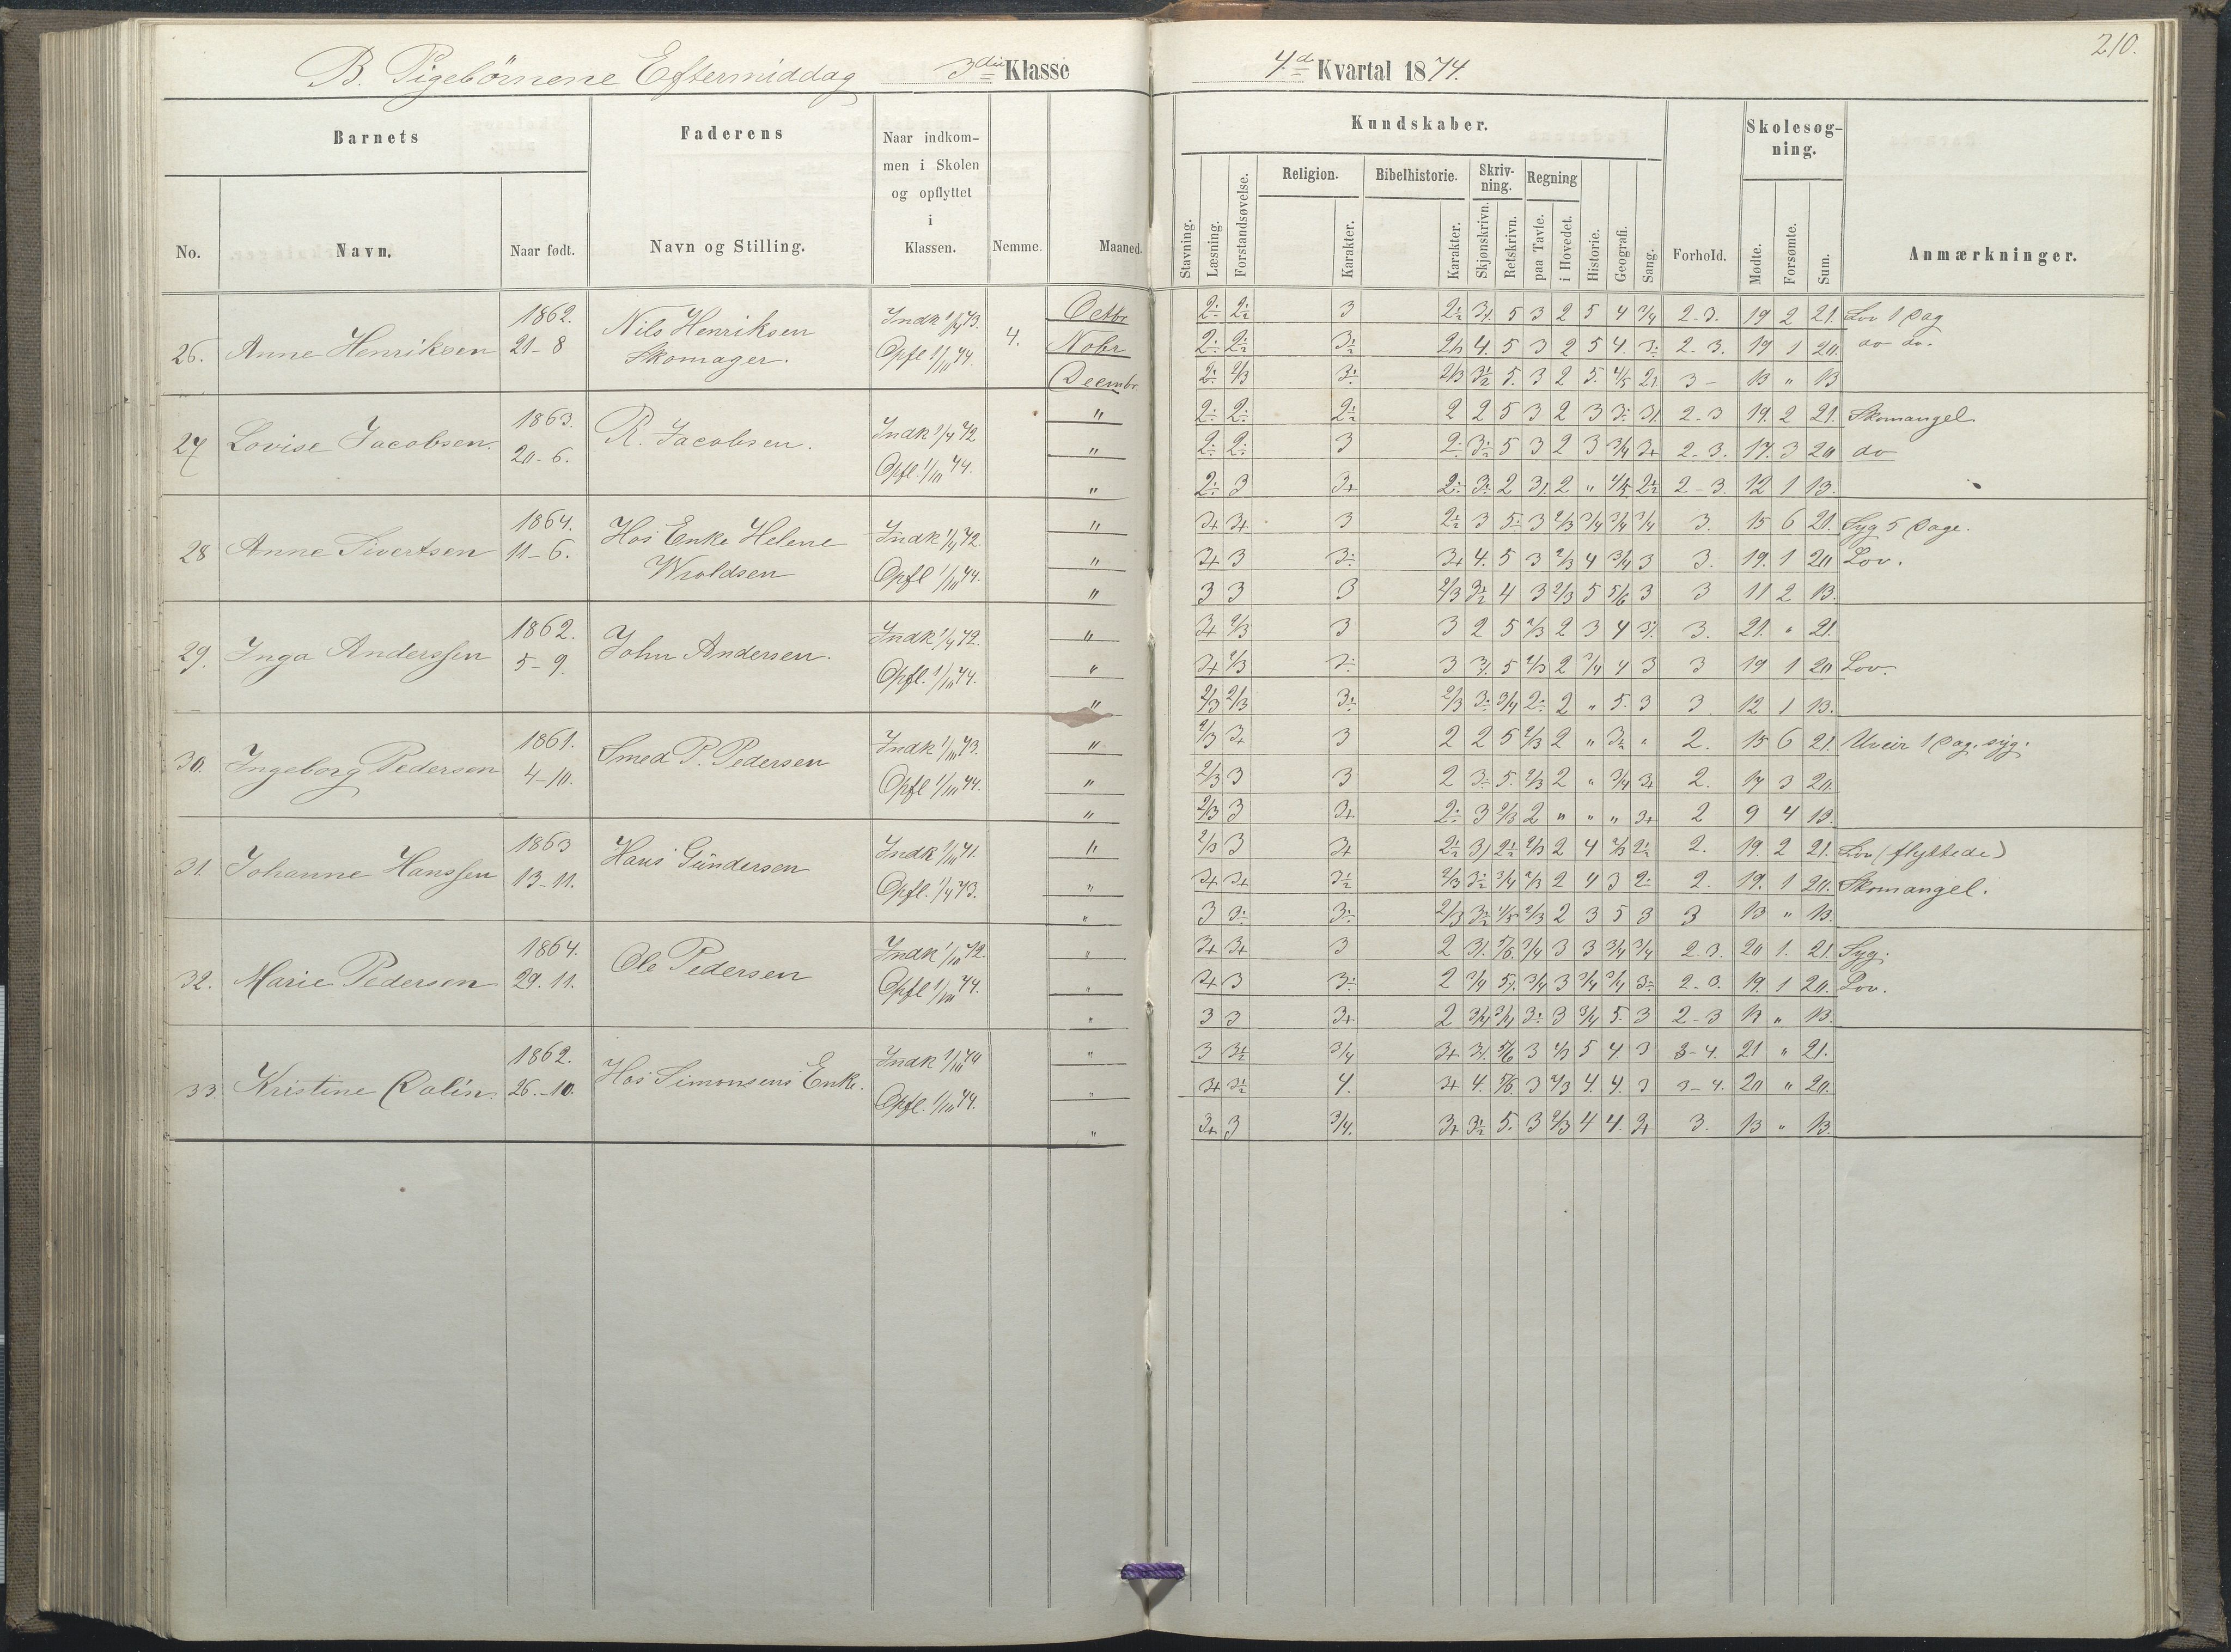 210.
B. Pigebörnene Eftermiddag 3die Klasse 4.de Kvartal 1874.
Barnets
Faderens
Naar indkom-
men i Skolen
og opflyttet
i
Klassen.
No. Navn. Naar født. Navn og Stilling. Nemme. Maaned.
Kundskaber.
Skolesøg-
ning.
Religion. Bibelhistorie. Skriv-
ning. Regning
Stavning. Læsning. Forstandsøvelse. Karakter. Karakter. Skjønskrivn. Retskrivn. paa Tavle. i Hovedet. Historie. Geografi. Sang. Forhold. Mødte. Forsømte. Sum. Anmærkninger.
26. Anne Henriksen 1862. 21-8
Nils Henriksen
Skomager.
4.
Octbr 3 5 3 2 5 4 3/4 2-3. 19 2 21. Lov 1 Dag
Nobr 4. 5 3 2 5 4. 2-3. 19 1 20. do do.
Decmbr. 2/3 2/3 5. 3 2 5. 4/5 3 - 13 " 13
27 Lovise Jacobsen. 1863. 20-6.
R. Jacobsen.
Indk 1/4 72
Opfl. 1/10 74.
" 2 2 5 3 2 3 2-3 19. 2 21. Skomangel.
" 3 5 3 2 3 3/4 2-3. 17. 3 20 do
" 3 2 2 " 4/5 2-3. 12 1 13.
28 Anne Sivertsen 1864. 11-6.
Hos Enke Helene
Wroldsen
Indk 1/4 72.
Opfl 1/10 74.
" 3+ 3+ 3 3 3 2/3 3/4 3/4 3/4 3. 15 6 21. Syg 5 Dage.
" 3+ 3 3+ 4. 5 3 2/3 4 3/4 3 3. 19. 1 20 Lov.
" 3 3 3 2/3 4 3 2/3 5 5/6 3 3 11 2 13.
29. Inga Anderssen 1862. 5-9.
John Andersen.
Indk 1/4 72.
Opfl. 1/10 74.
" 3+ 2/3 3 3 2 5 2/3 2 3 4 3. 21. " 21.
" 3+ 2/3 3 5 2/3 2 3/4 4 3 3 19 1 20 Lov.
" 2/3 2/3 2/3 3/4 2 " 5. 3 3 12 1 13.
30. Ingeborg Pedersen 1861. 4-10.
Smed P. Pedersen
Indk 1/10 73.
Opfl 1/10 74.
" 2/3 3+ 3 2 2 5 2/3 2 " " 2. 15 6 21. Uveir 1 Dag. syg.
" 2/3 3 3 2 5. 2/3 2 " 3/4 3+ 2. 17 3 20.
" 2/3 3 3+ 3 2/3 2 " " " 3+ 2 9 4 13.
31. Johanne Hanssen 1863 13-11.
Hans Gundersen
Indk 1/10 71.
Opfl. 1/4 73.
" 2/3 3 3+ 2/3 2 4 2/3 2. 19. 2 21. Lov (flyttede)
" 3+ 3+ 2/3 3/4 2/3 2 4 3 2. 19. 1 20. Skomangel.
" 3 2/3 4/5 2/3 2 3 5 3 3 13 " 13.
32. Marie Pedersen 1864. 29.11.
Ole Pedersen
Indk 1/10 72.
Opfl 1/10 74.
" 3+ 3+ 3 2 5/6. 3/4 3 3 3/4 3/4 2.3. 20 1. 21. Syg.
" 3+ 3 2 3/4 3/4 3 3/4 3/4 2-3. 19. 1 20. Lov.
" 3 3 3+ 2 3/4 3/4 3 3/4 5. 3 2-3 13 " 13.
33. Kristine Dalin. 1862. 26.-10.
Hos Simonsens Enke.
Indk 1/10 70
Opfl. 1/10 74.
" 3 3/4 3+ 5/6 3 2/3 5 4 3 3-4. 21 " 21.
" 3+ 4. 3+ 4. 5/6. 3 2/3 4. 4. 3 3-4. 20 " 20.
" 3+ 3 3/4. 3+ 5. 3 2/3 4 4 3+ 3. 13 " 13.